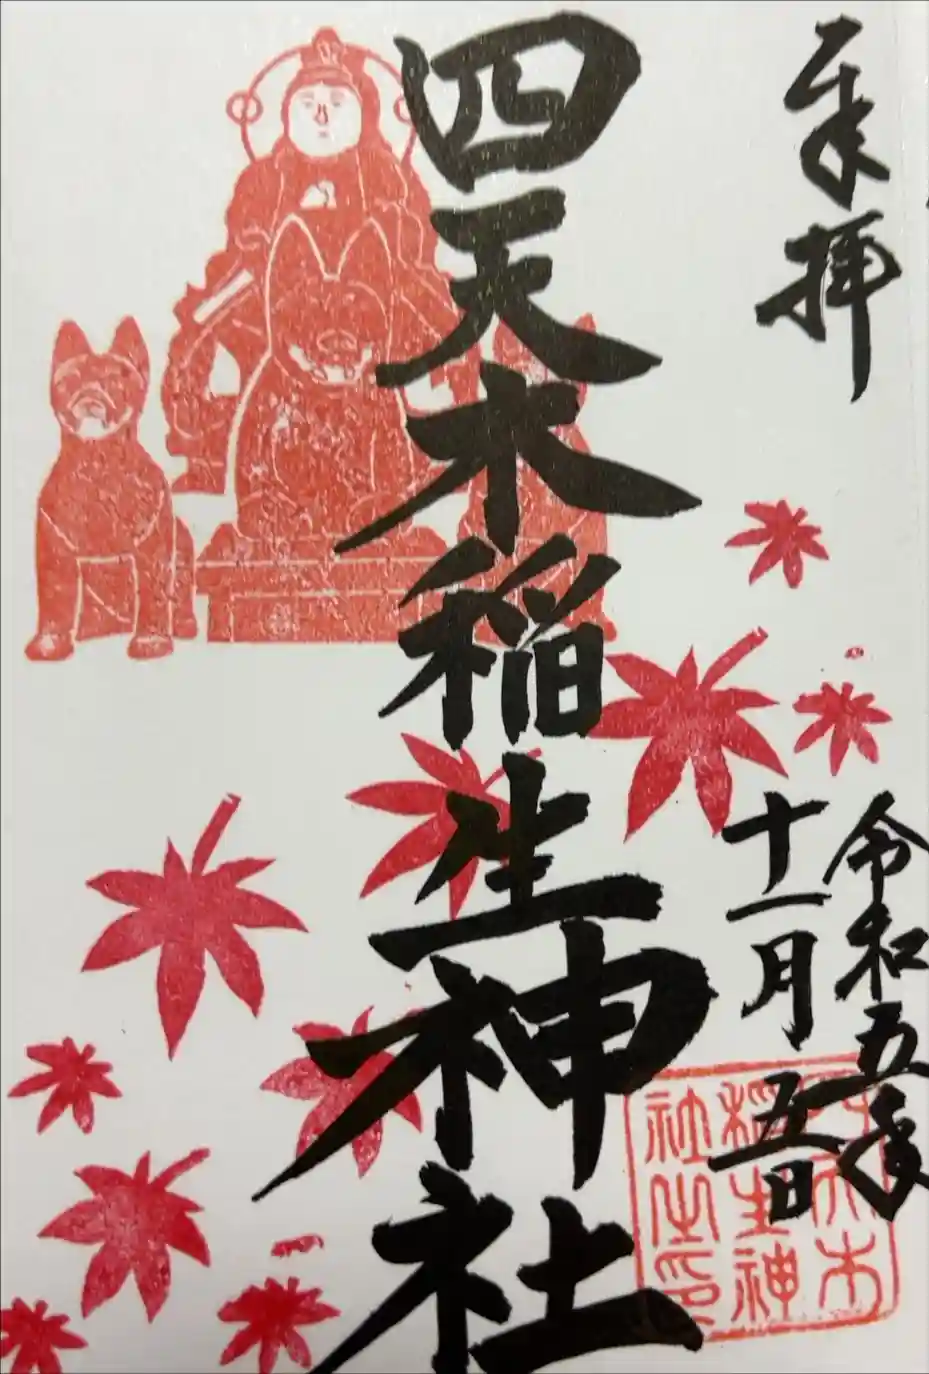 奉拝
令和五年
十一月五日
四天木稲生神社
四天木
稲生神
社之印